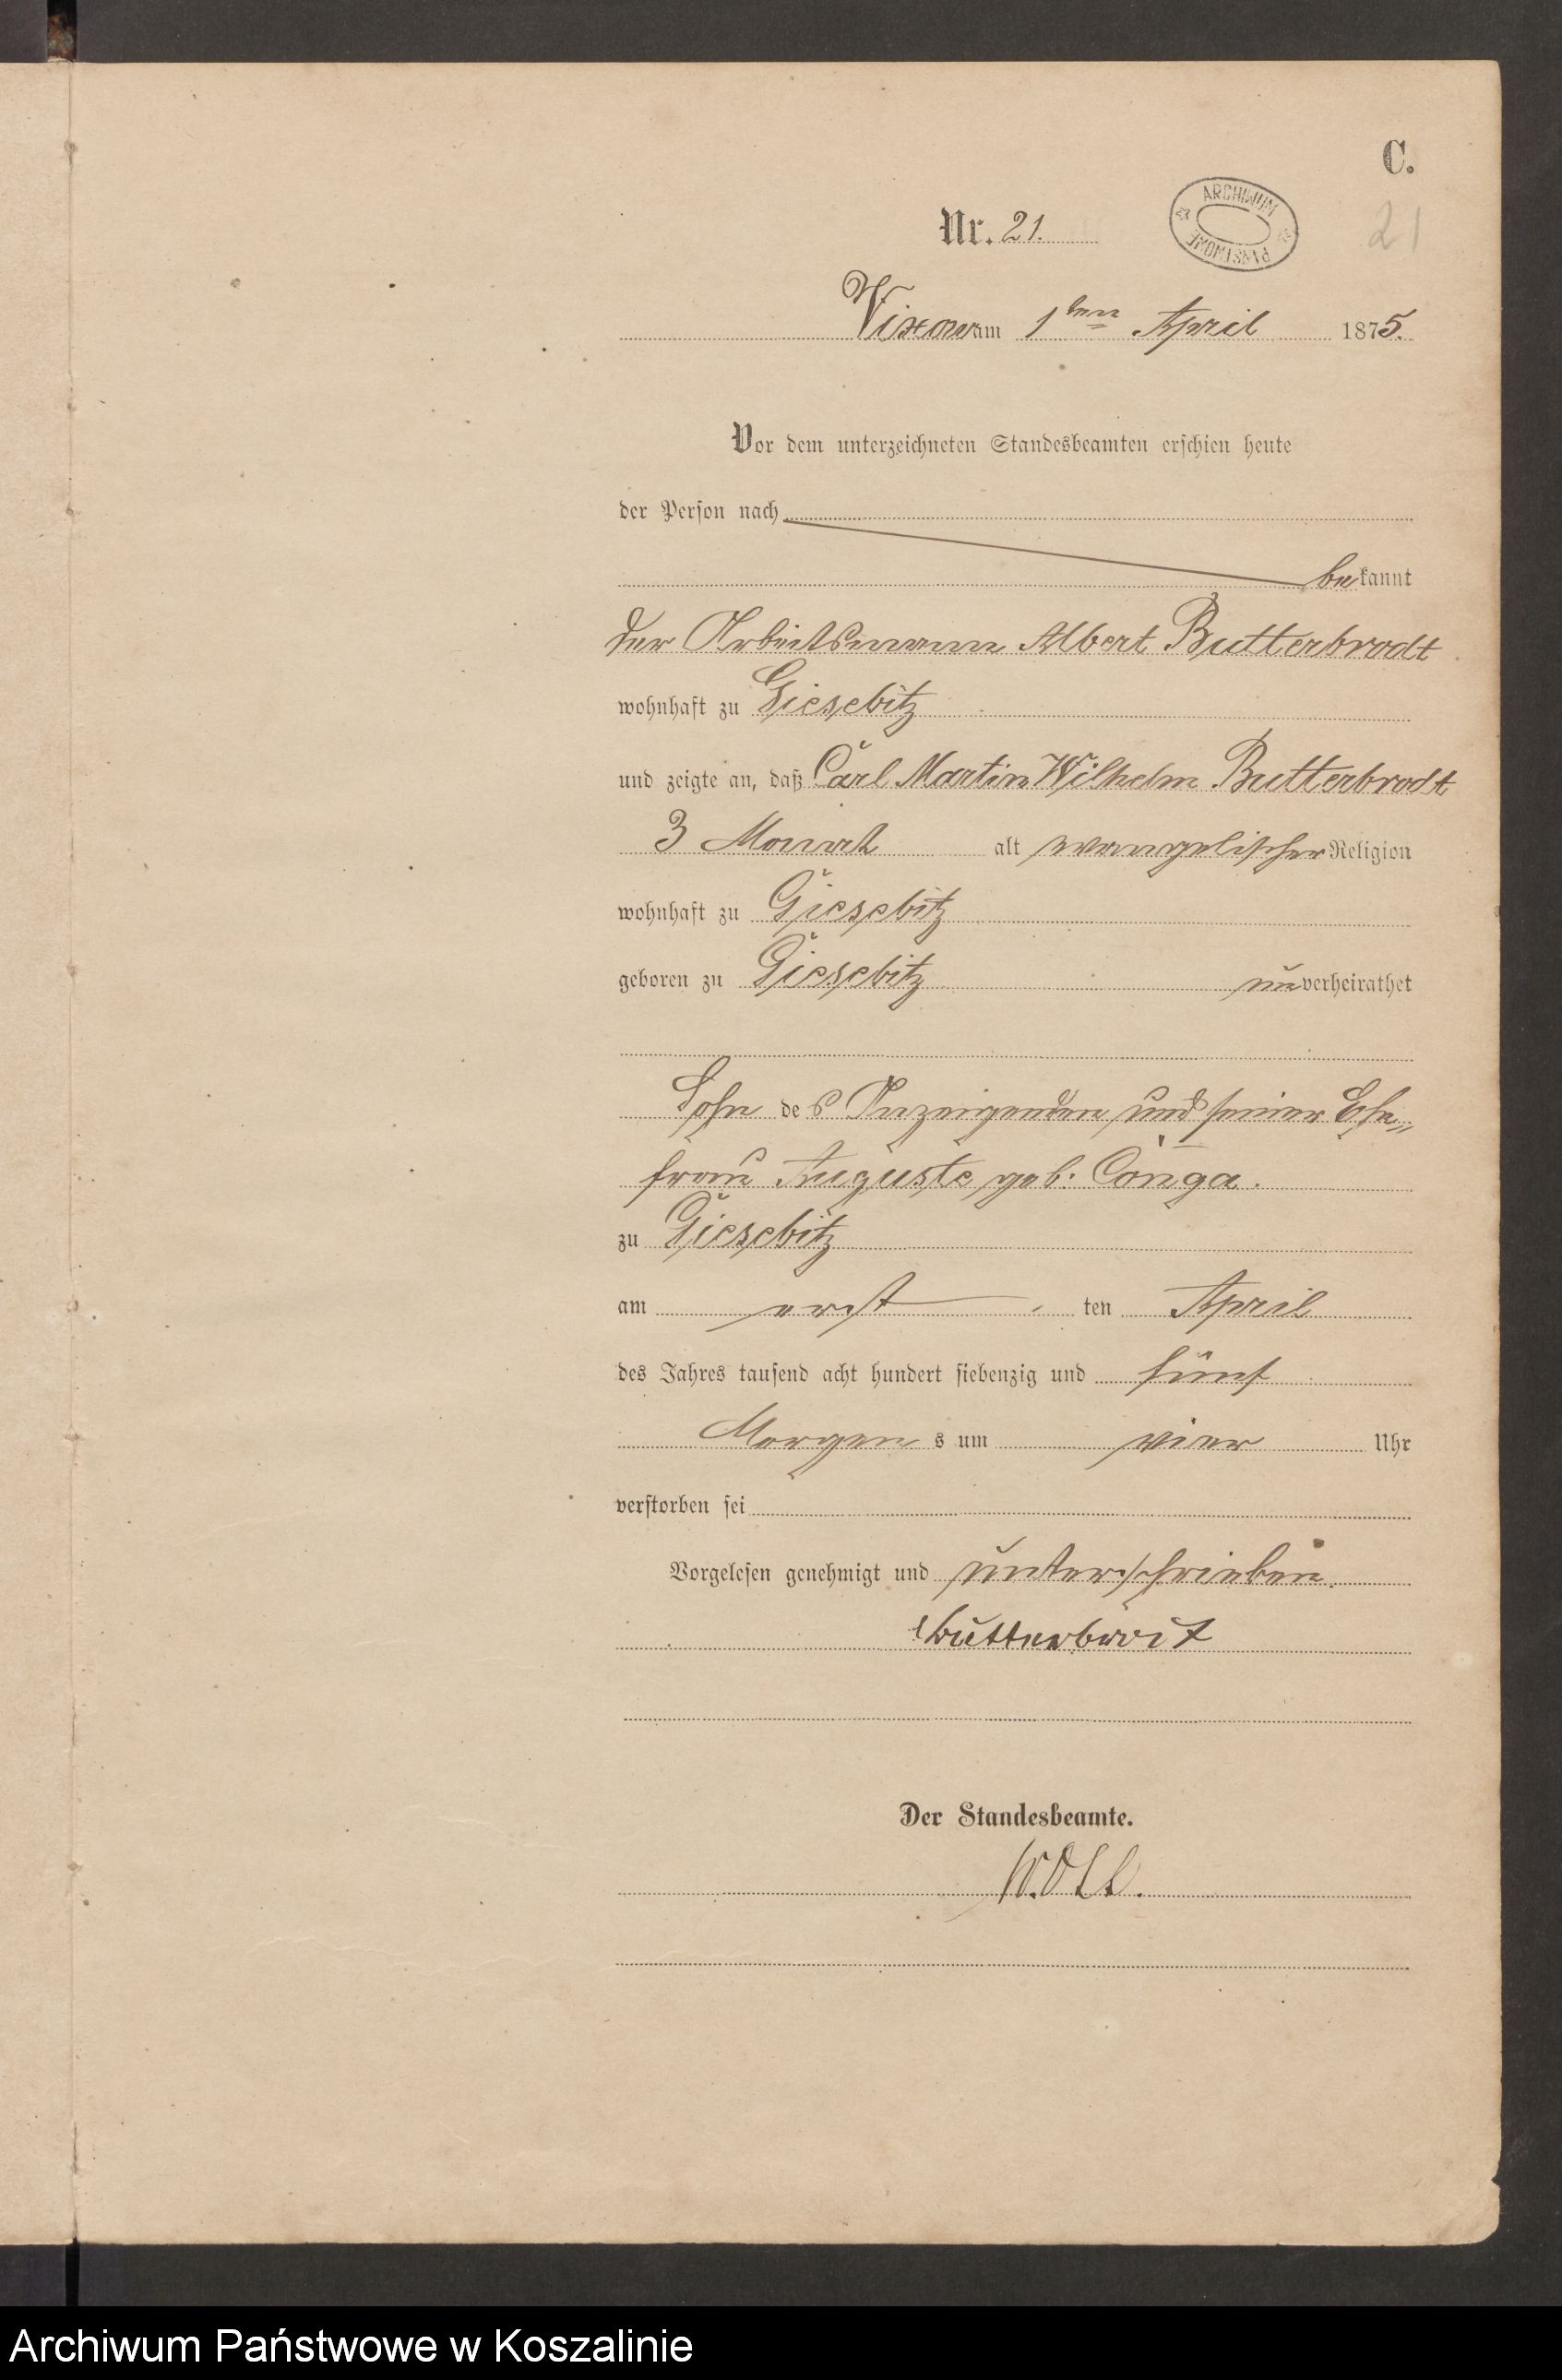 C.
Nr. 21.
ARCHIWUM PAŃSTWOWE
21
Vixow am 1ten April 1875.
Vor dem unterzeichneten Standesbeamten erschien heute
der Person nach
bekannt
der Arbeitsmann Albert Butterbrodt
wohnhaft zu Giesebitz
und zeigte an, daß Carl Martin Wilhelm Butterbrodt
3 Monat alt evangelischer Religion
wohnhaft zu Giesebitz
geboren zu Giesebitz unverheirathet
Sohn des Anzeigenden und seiner Ehe„
frau Auguste geb: Conga.
zu Giesebitz
am erst ten April
des Jahres tausend acht hundert siebenzig und fünf
Morgen s um vier Uhr
verstorben sei
Vorgelesen genehmigt und unterschrieben.
Der Standesbeamte.
Archiwum Państwowe w Koszalinie